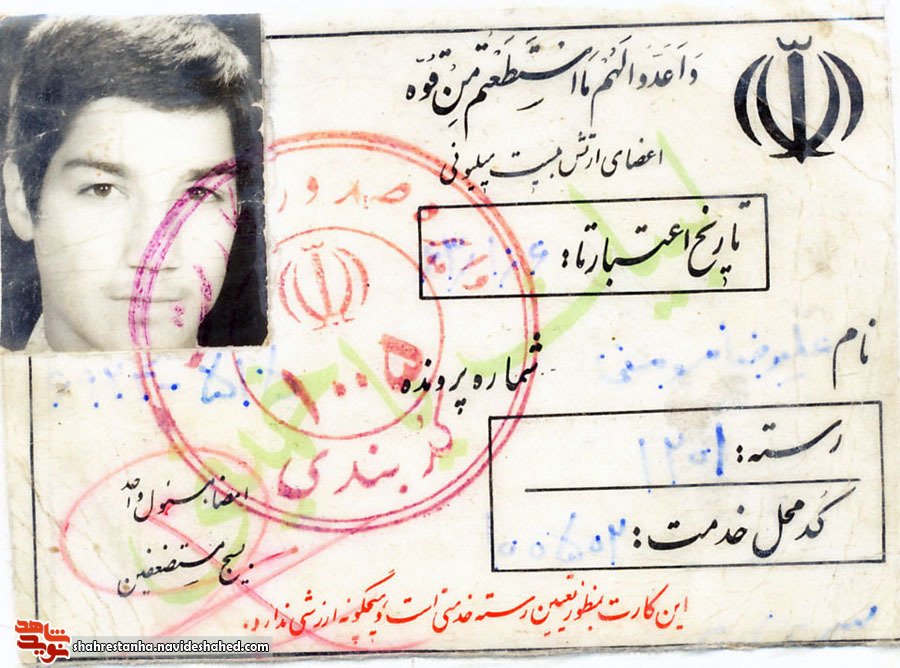 وَاَعِدّوا لَهُمْ مَااسْتَطَعْتُم مِنْ قُوَّه
اعضای ارتش بیست میلیونی
تاریخ اعتبار تا:
نام علیرضا
شماره پرونده
رسته: ۱۲۰۱
کد محل خدمت:
صدور
۱۰۰۵
کد بندی
امضاء مسئول واحد
بسیج مستضعفین
این کارت بمنظور تعیین رسته خدمتی است و هیچگونه ارزشی ندارد.
نوید شاهد
shahrestanha.navideshahed.com